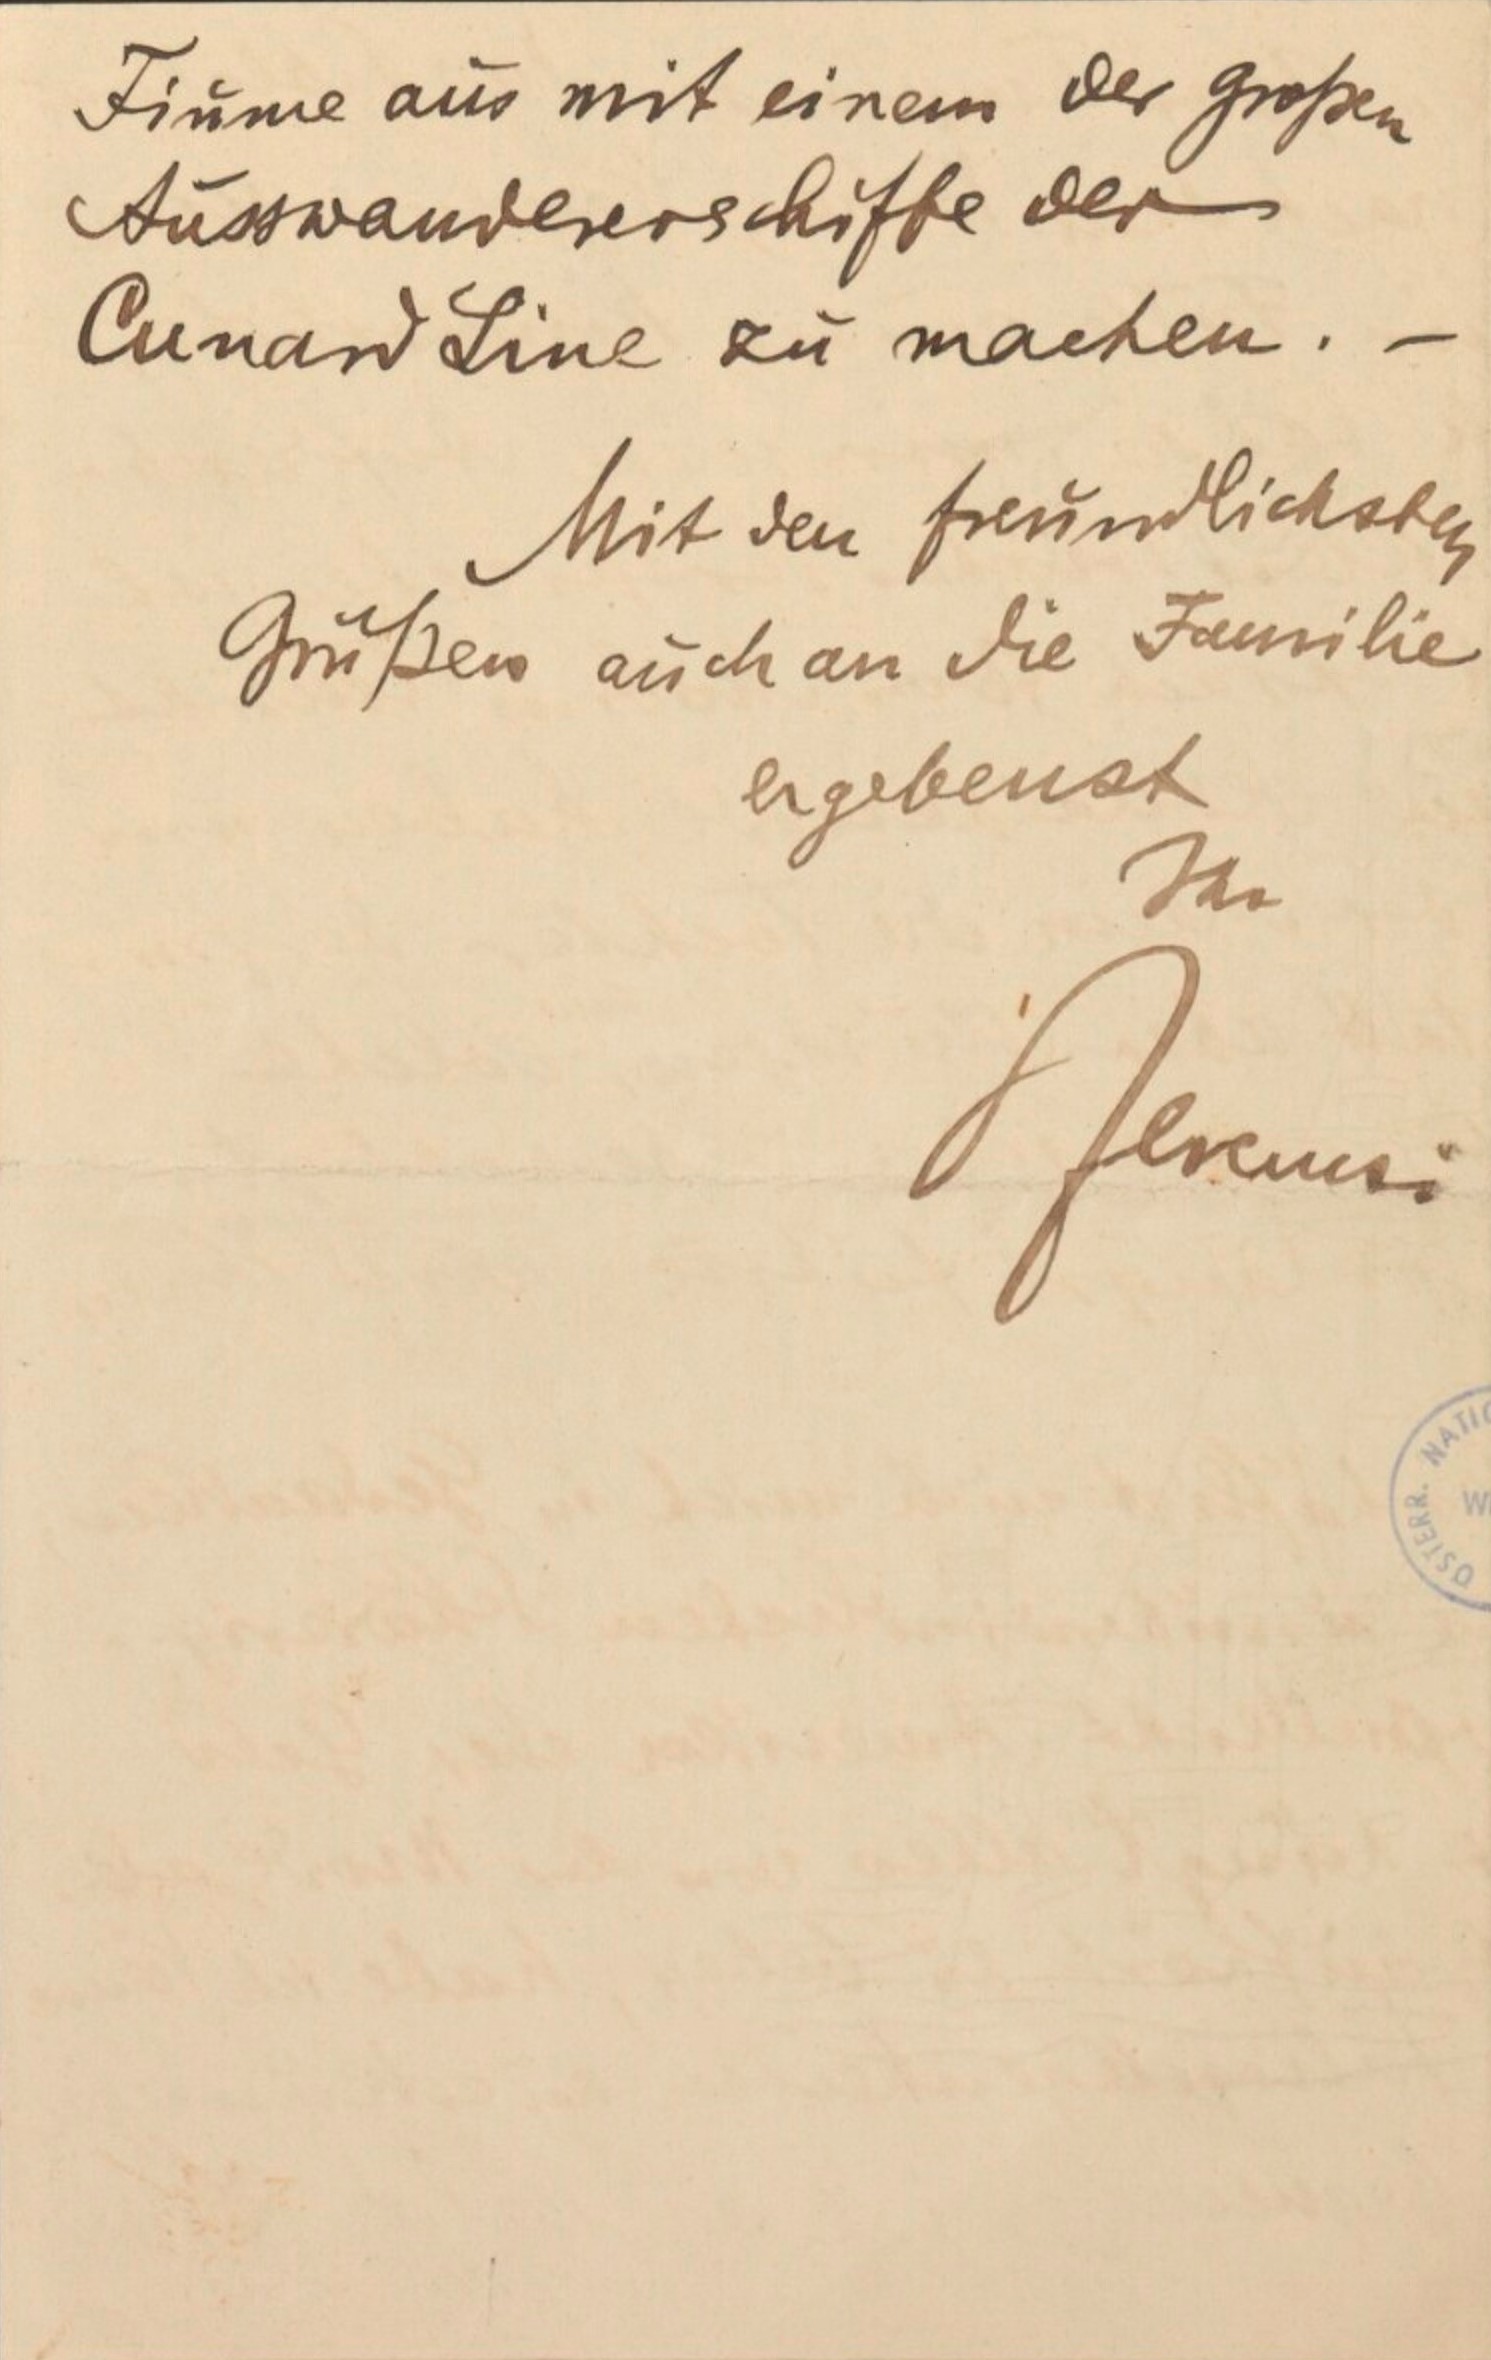 Fiume aus mit einem der großen
Ausswandererschiffe der
Cunard Line zu machen. –
Mit den freundlichsten
Grüßen auch an die Familie
ergebenst
Ihr
ÖSTERR. NATIO
WI